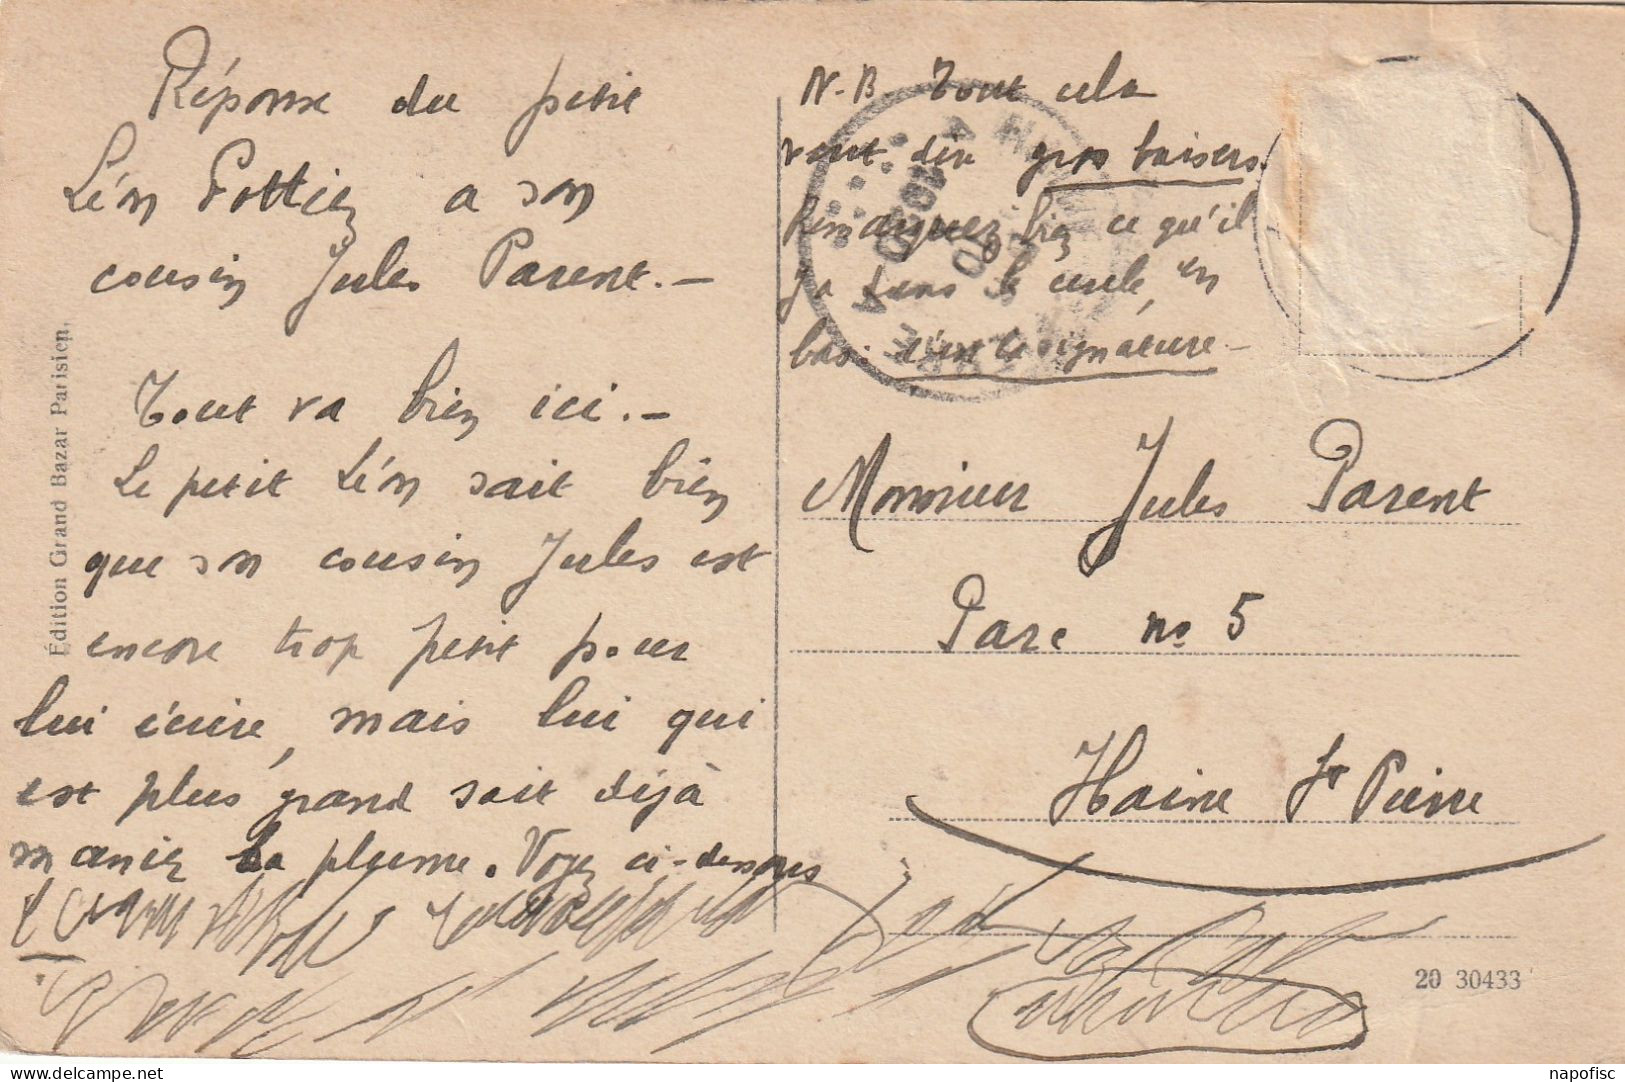 Réponse du petit
Léon Pottiez a son
cousin Jules Parent.-
Tout va bien ici.-
Le petit Léon sait bien
que son cousin Jules est
encore trop petit pour
lui écrire, mais lui qui
est plus grand sait déjà
manier la plume. Voyez ci-dessous
N.B. Tout cela
veut dire gros baisers.
Remarquez bien ce qu'il
y a dans le cercle, en
bas: c'est la signature-
Monsieur Jules Parent
Parc no 5
Haine St Pierre
Édition Grand Bazar Parisien.
20 30433
napofisc